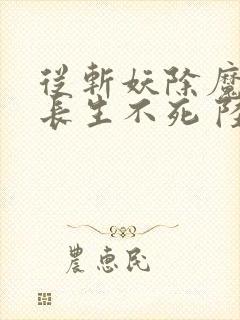 從斬妖除魔
長生不死 陸
農惠民